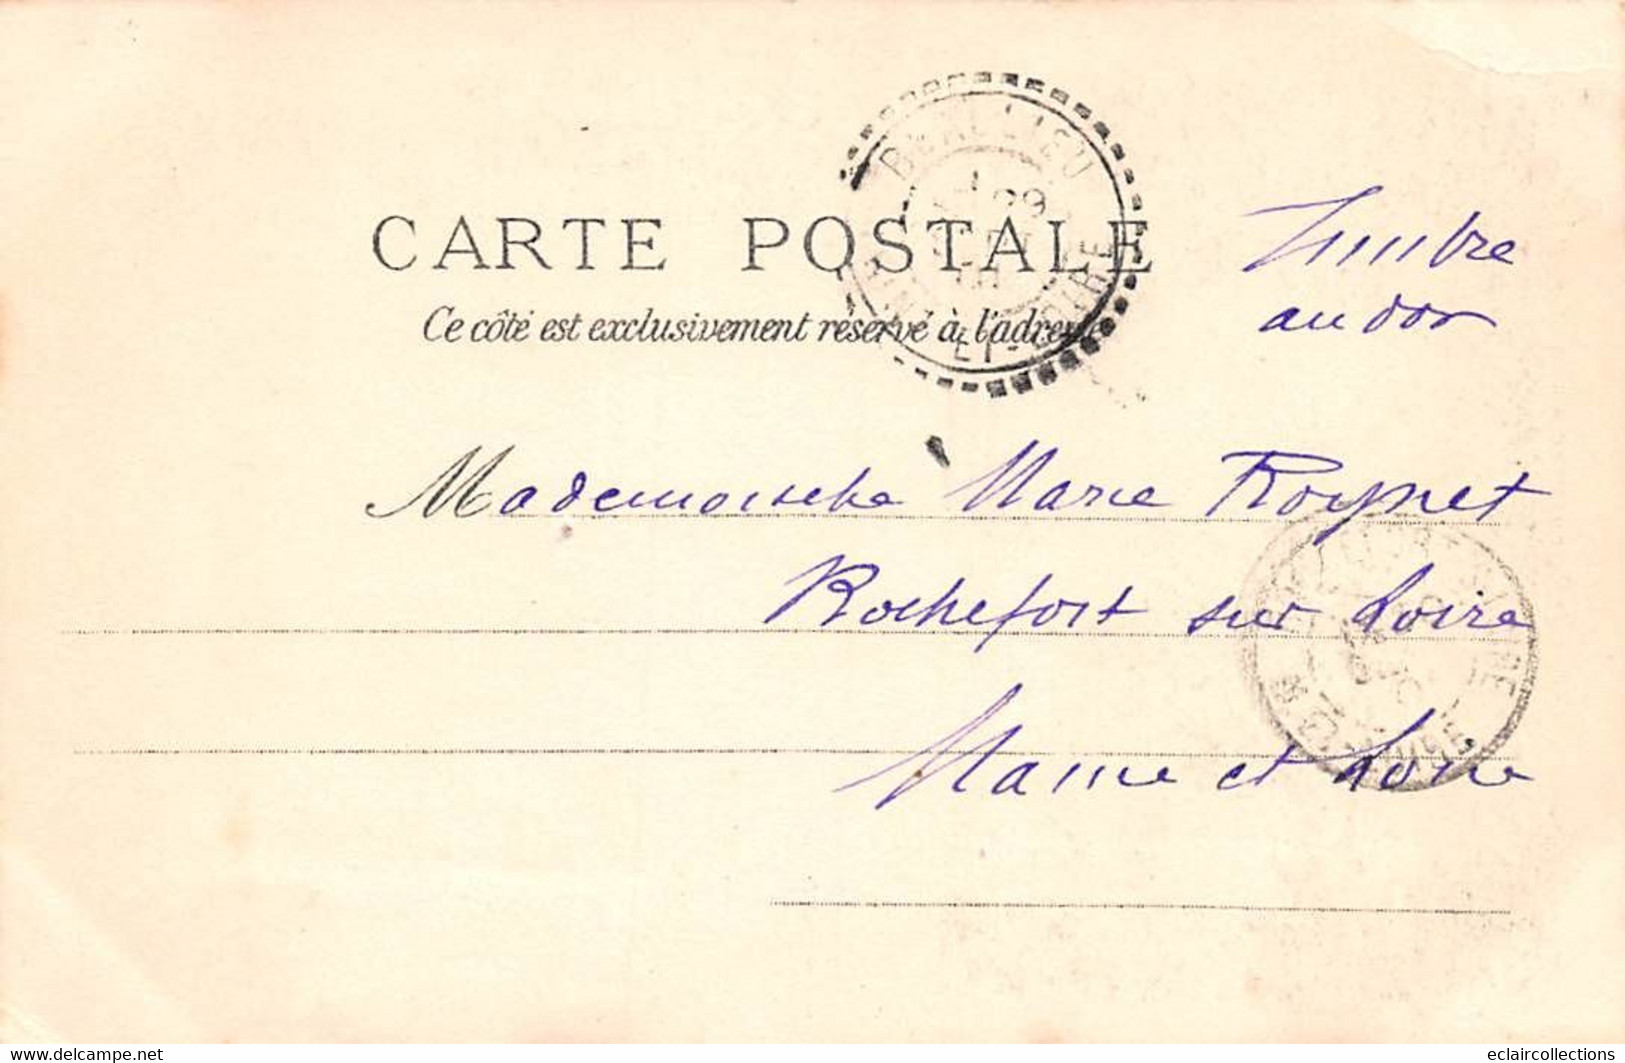 BEAULIEU
ET-LOIRE
CARTE POSTALE
Timbre
au dos
Ce côté est exclusivement réservé à l'adresse
Mademoiselle Marie Roynet
Rochefort sur Loire
Maine et Loire
www.delcampe.net
eclaircollections